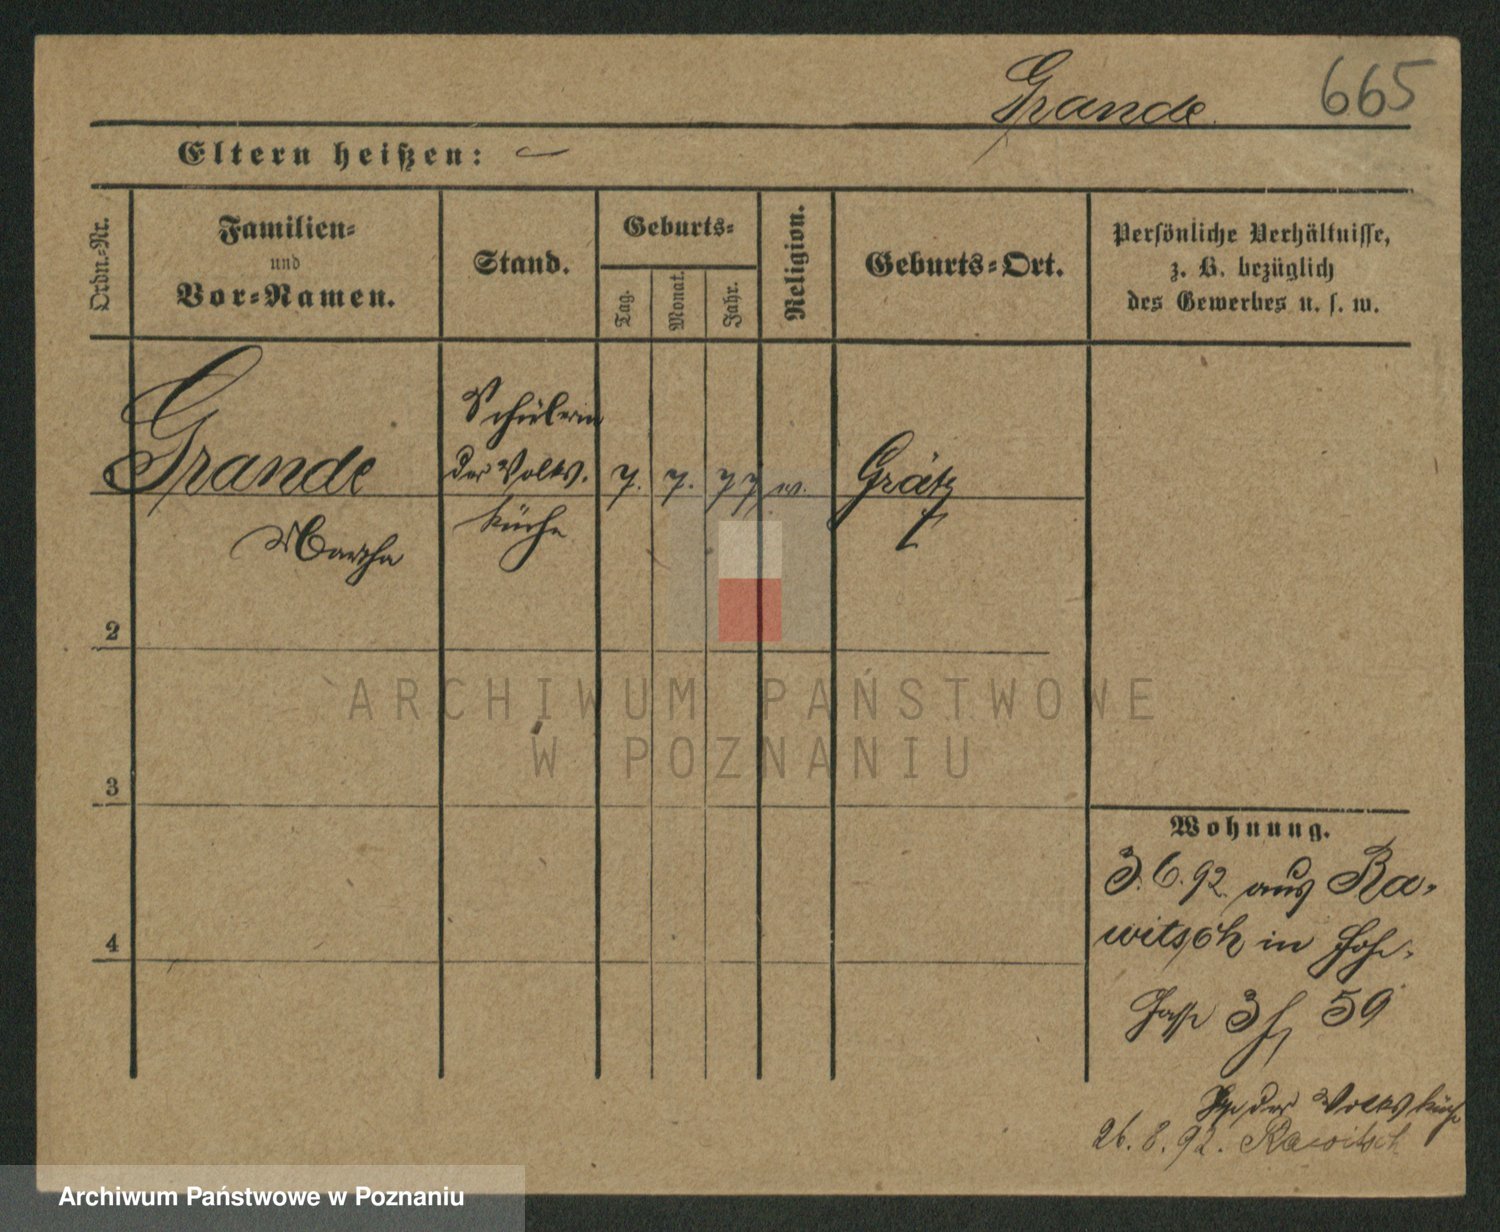 Grande. 665
Eltern heißen: —
Ordn.-Nr.
Familien-
und
Vor-Namen.
Stand.
Geburts-
Tag.
Monat.
Jahr.
Religion.
Geburts-Ort.
Persönliche Verhältnisse,
z. B. bezüglich
des Gewerbes u. s. w.
Grande
Martha
Schülerin
der Volks.
küche
7. 7. 77
Grätz
2
3
4
Wohnung.
3.6.92 aus Ra-
witsch in
3 59
der Volksküche
26.8.92. Rawitsch
ARCHIWUM PAŃSTWOWE
W POZNANIU
Archiwum Państwowe w Poznaniu